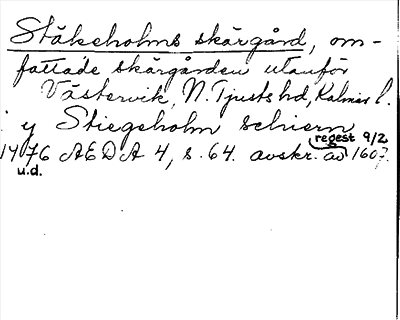 Stäkeholms skärgård, om-
fattade skärgården utanför
Västervik, N. Tjusts hd, Kalmar l.
i y Stiegeholm schiern
regest 9/2
1476 AEDA 4, s. 64. avskr. av 1607.
u.d.